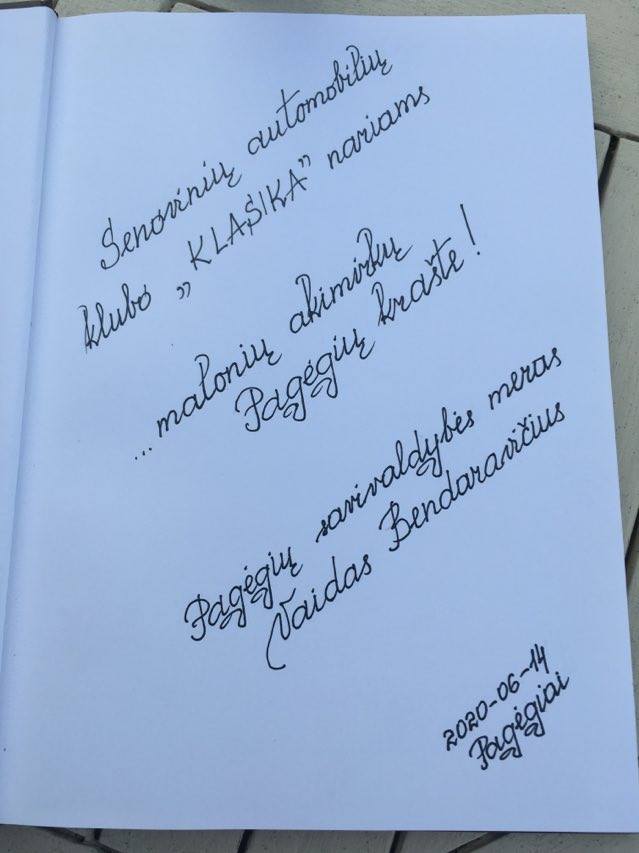 Senovinių automobilių
klubo „KLASIKA” nariams
...malonių akimirkų
Pagėgių krašte!
Pagėgių savivaldybės meras
Vaidas Bendaravičius
2020-06-14
Pagėgiai